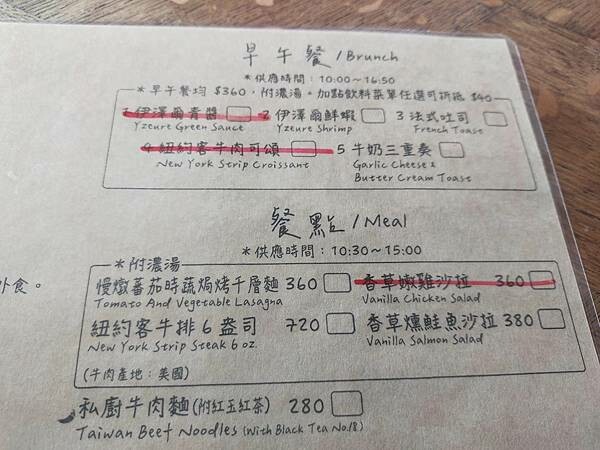 早午餐/Brunch
*供應時間：10:00~16:50
*早午餐均 $360，附濃湯。加點飲料菜單任選可折抵 $40
1 伊澤爾青醬 2 伊澤爾鮮蝦 3 法式吐司
Yzeure Green Sauce Yzeure Shrimp French Toast
4 紐約客牛肉可頌 5 牛奶三重奏
New York Strip Croissant Garlic Cheese &
Butter Cream Toast
餐點/Meal
*供應時間：10:30~15:00
*附濃湯
慢燉蕃茄時蔬焗烤千層麵 360 香草嫩雞沙拉 360
Tomato And Vegetable Lasagna Vanilla Chicken Salad
外食。
紐約客牛排6盎司 720 香草燻鮭魚沙拉 380
New York Strip Steak 6 oz. Vanilla Salmon Salad
(牛肉產地：美國)
私廚牛肉麵(附紅玉紅茶) 280
Taiwan Beef Noodles (With Black Tea No.18)